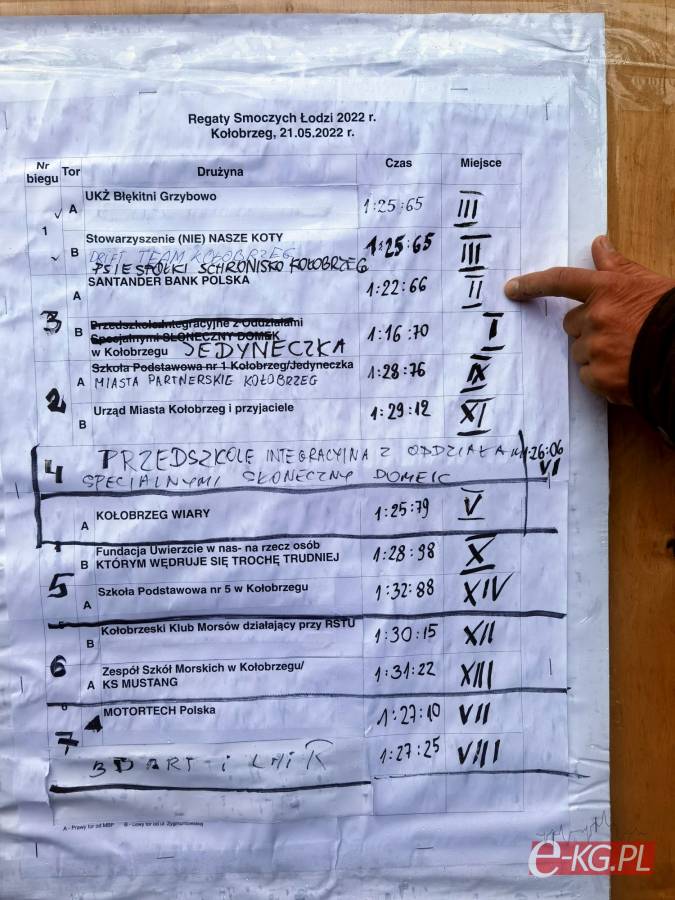 Regaty Smoczych Łodzi 2022 r.
Kołobrzeg, 21.05.2022 r.
Nr biegu Tor Drużyna Czas Miejsce
A UKŻ Błękitni Grzybowo 1:25:65 III
1
Stowarzyszenie (NIE) NASZE KOTY
B DRIFT TEAM KOŁOBRZEG 1:25:65 III
PSIESPÓŁKI SCHRONISKO KOŁOBRZEG
A SANTANDER BANK POLSKA 1:22:66 II
3
B Przedszkole Integracyjne z Oddziałami 1:16:70 I
Specjalnymi SŁONECZNY DOMEK
w Kołobrzegu JEDYNECZKA
Szkoła Podstawowa nr 1 Kołobrzeg/Jedyneczka
A MIASTA PARTNERSKIE KOŁOBRZEG 1:28:76 IX
2
B Urząd Miasta Kołobrzeg i przyjaciele 1:29:12 XI
4 PRZEDSZKOLE INTEGRACYJNA Z ODDZIAŁA 1:26:06
SPECIALNYMI SŁONECZNY DOMEK VI
A KOŁOBRZEG WIARY 1:25:79 V
Fundacja Uwierzcie w nas- na rzecz osób
B KTÓRYM WĘDRUJE SIĘ TROCHĘ TRUDNIEJ 1:28:98 X
5
A Szkoła Podstawowa nr 5 w Kołobrzegu 1:32:88 XIV
B Kołobrzeski Klub Morsów działający przy RSTU 1:30:15 XII
6
Zespół Szkół Morskich w Kołobrzegu/
A KS MUSTANG 1:31:22 XIII
MOTORTECH Polska 1:27:10 VII
7
1:27:25 VIII
A - Prawy tor od MBP B - Lewy tor od ul. Zygmuntowskiej
e-KG.PL